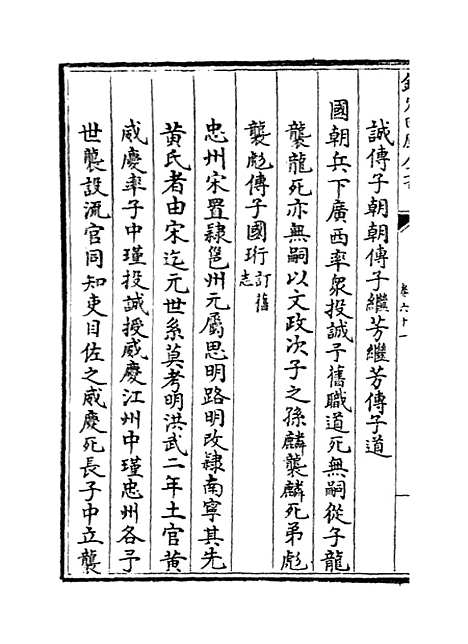 誠傳子朝朝傳子繼芳繼芳傳子道
國朝兵下廣西率衆投誠予舊職道死無嗣從子龍
襲龍死亦無嗣以文政次子之孫麟襲麟死弟彪
襲彪傳子國珩訂舊志
忠州宋置隸邕州元屬思明路明改隸南寧其先
黄氏者由宋迄元世系莫考明洪武二年土官黄
威慶率子中瑾投誠授威慶江州中瑾忠州各予
世襲設流官同知吏目佐之威慶死長子中立襲
卷六十一